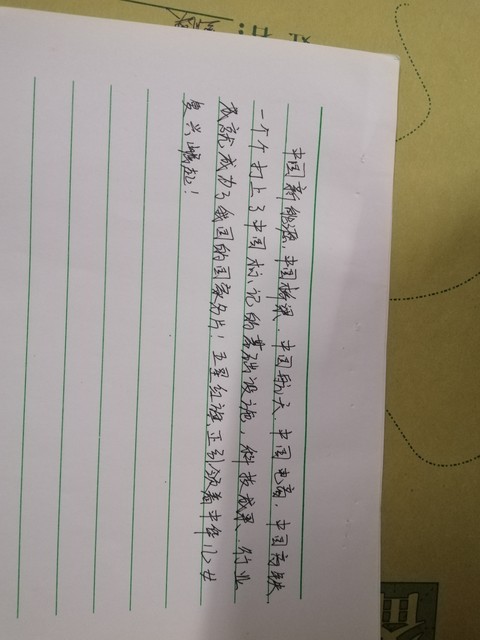 中国新能源、中国桥梁、中国航天、中国电商、中国高铁、
一个个打上了中国标记的基础设施,科技成果、行业
成就成为了我国的国家名片!五星红旗正引领着中华儿女
复兴崛起!